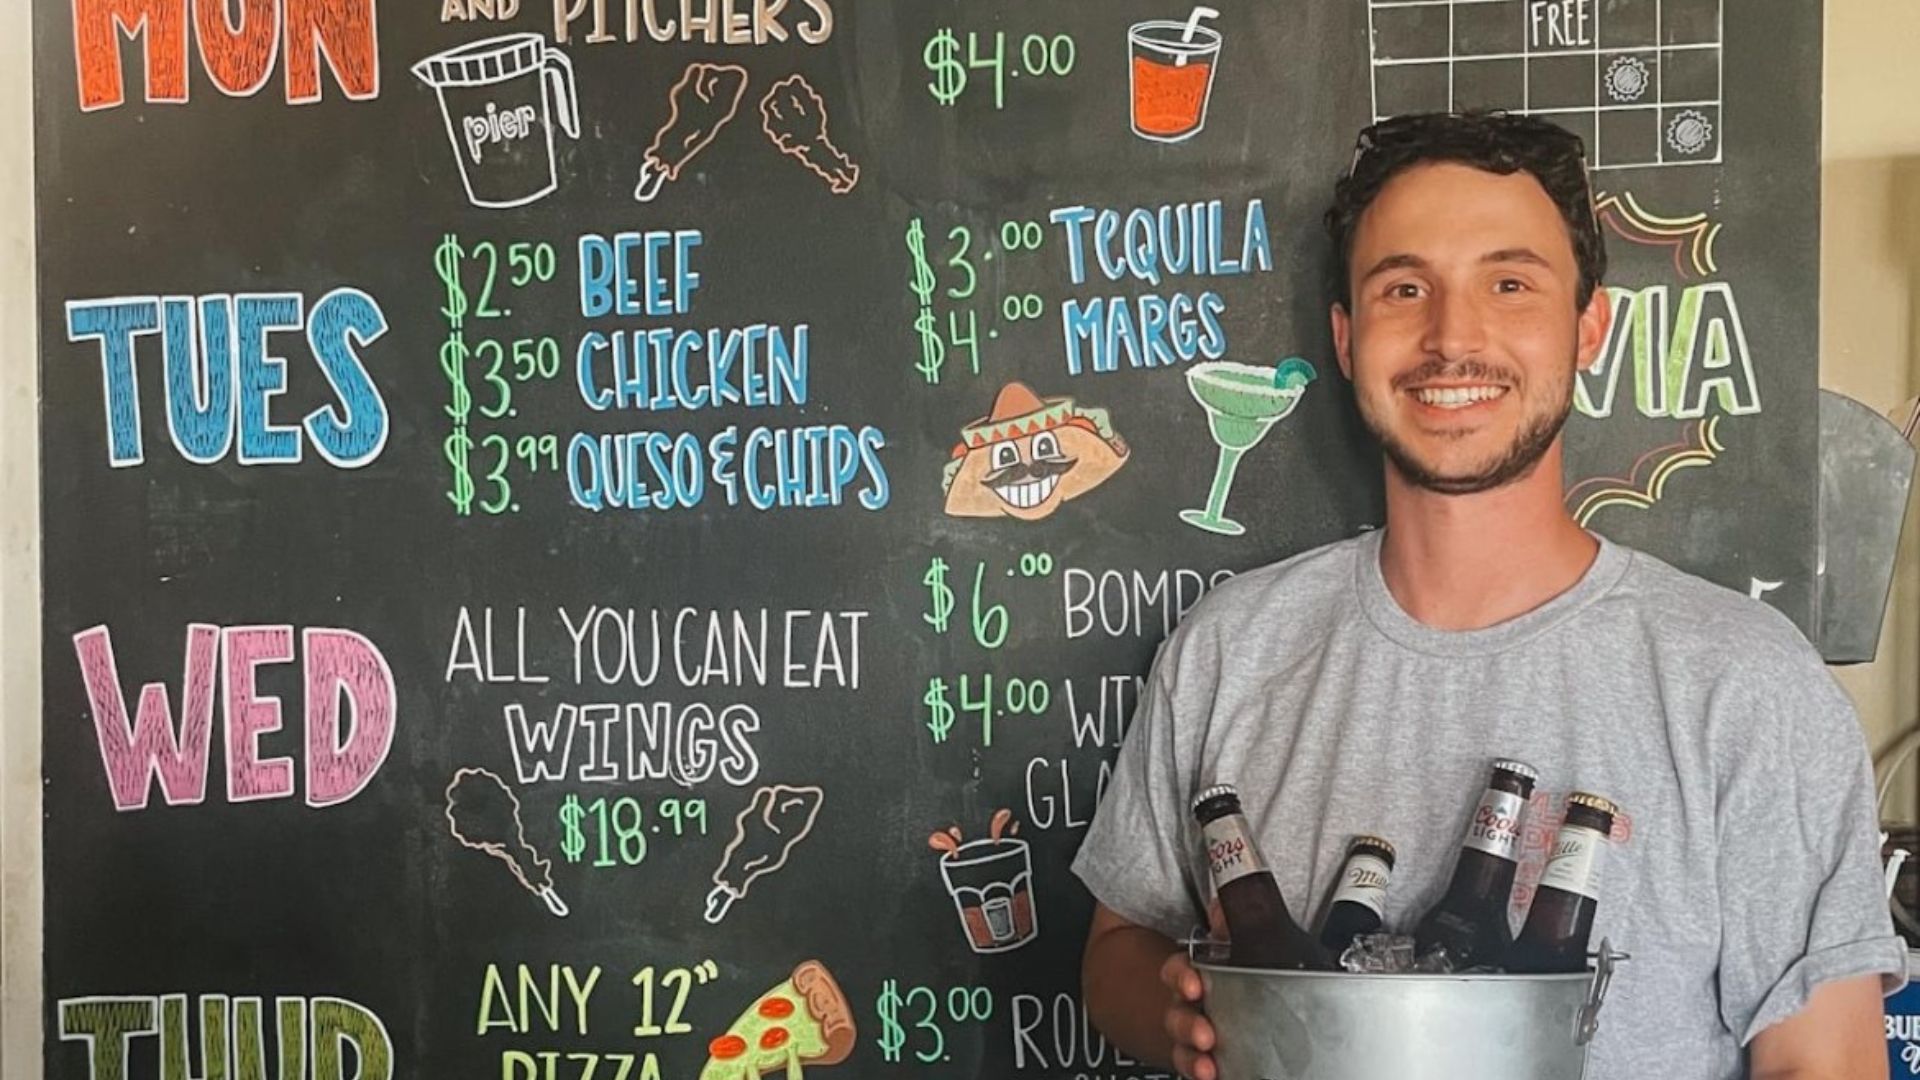 MON
AND PITCHERS
pier
$4.00
FREE
TUES
$2.50 BEEF
$3.50 CHICKEN
$3.99 QUESO & CHIPS
$3.00 TEQUILA
$4.00 MARGS
VIA
WED
ALL YOU CAN EAT
WINGS
$18.99
$6.00 BOMBS
$4.00
THUR
ANY 12"
PIZZA
$3.00
Coors
LIGHT
Coors
LIGHT